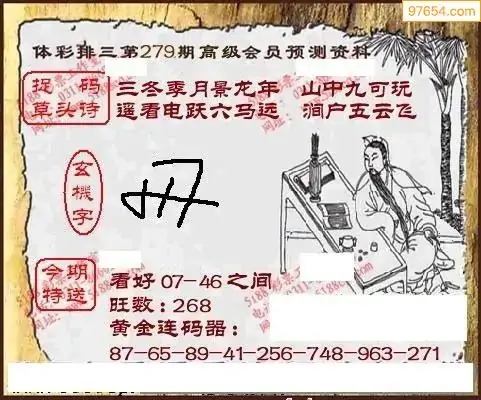 97654.com
体彩排三第279期高级会员预测资料
捉码草头诗
三冬季月景龙年 山中九可玩
遥看电跃六马远 涧户五云飞
玄機字
今期特送
看好 07-46 之间
旺数:268
黄金连码器:
87-65-89-41-256-748-963-271